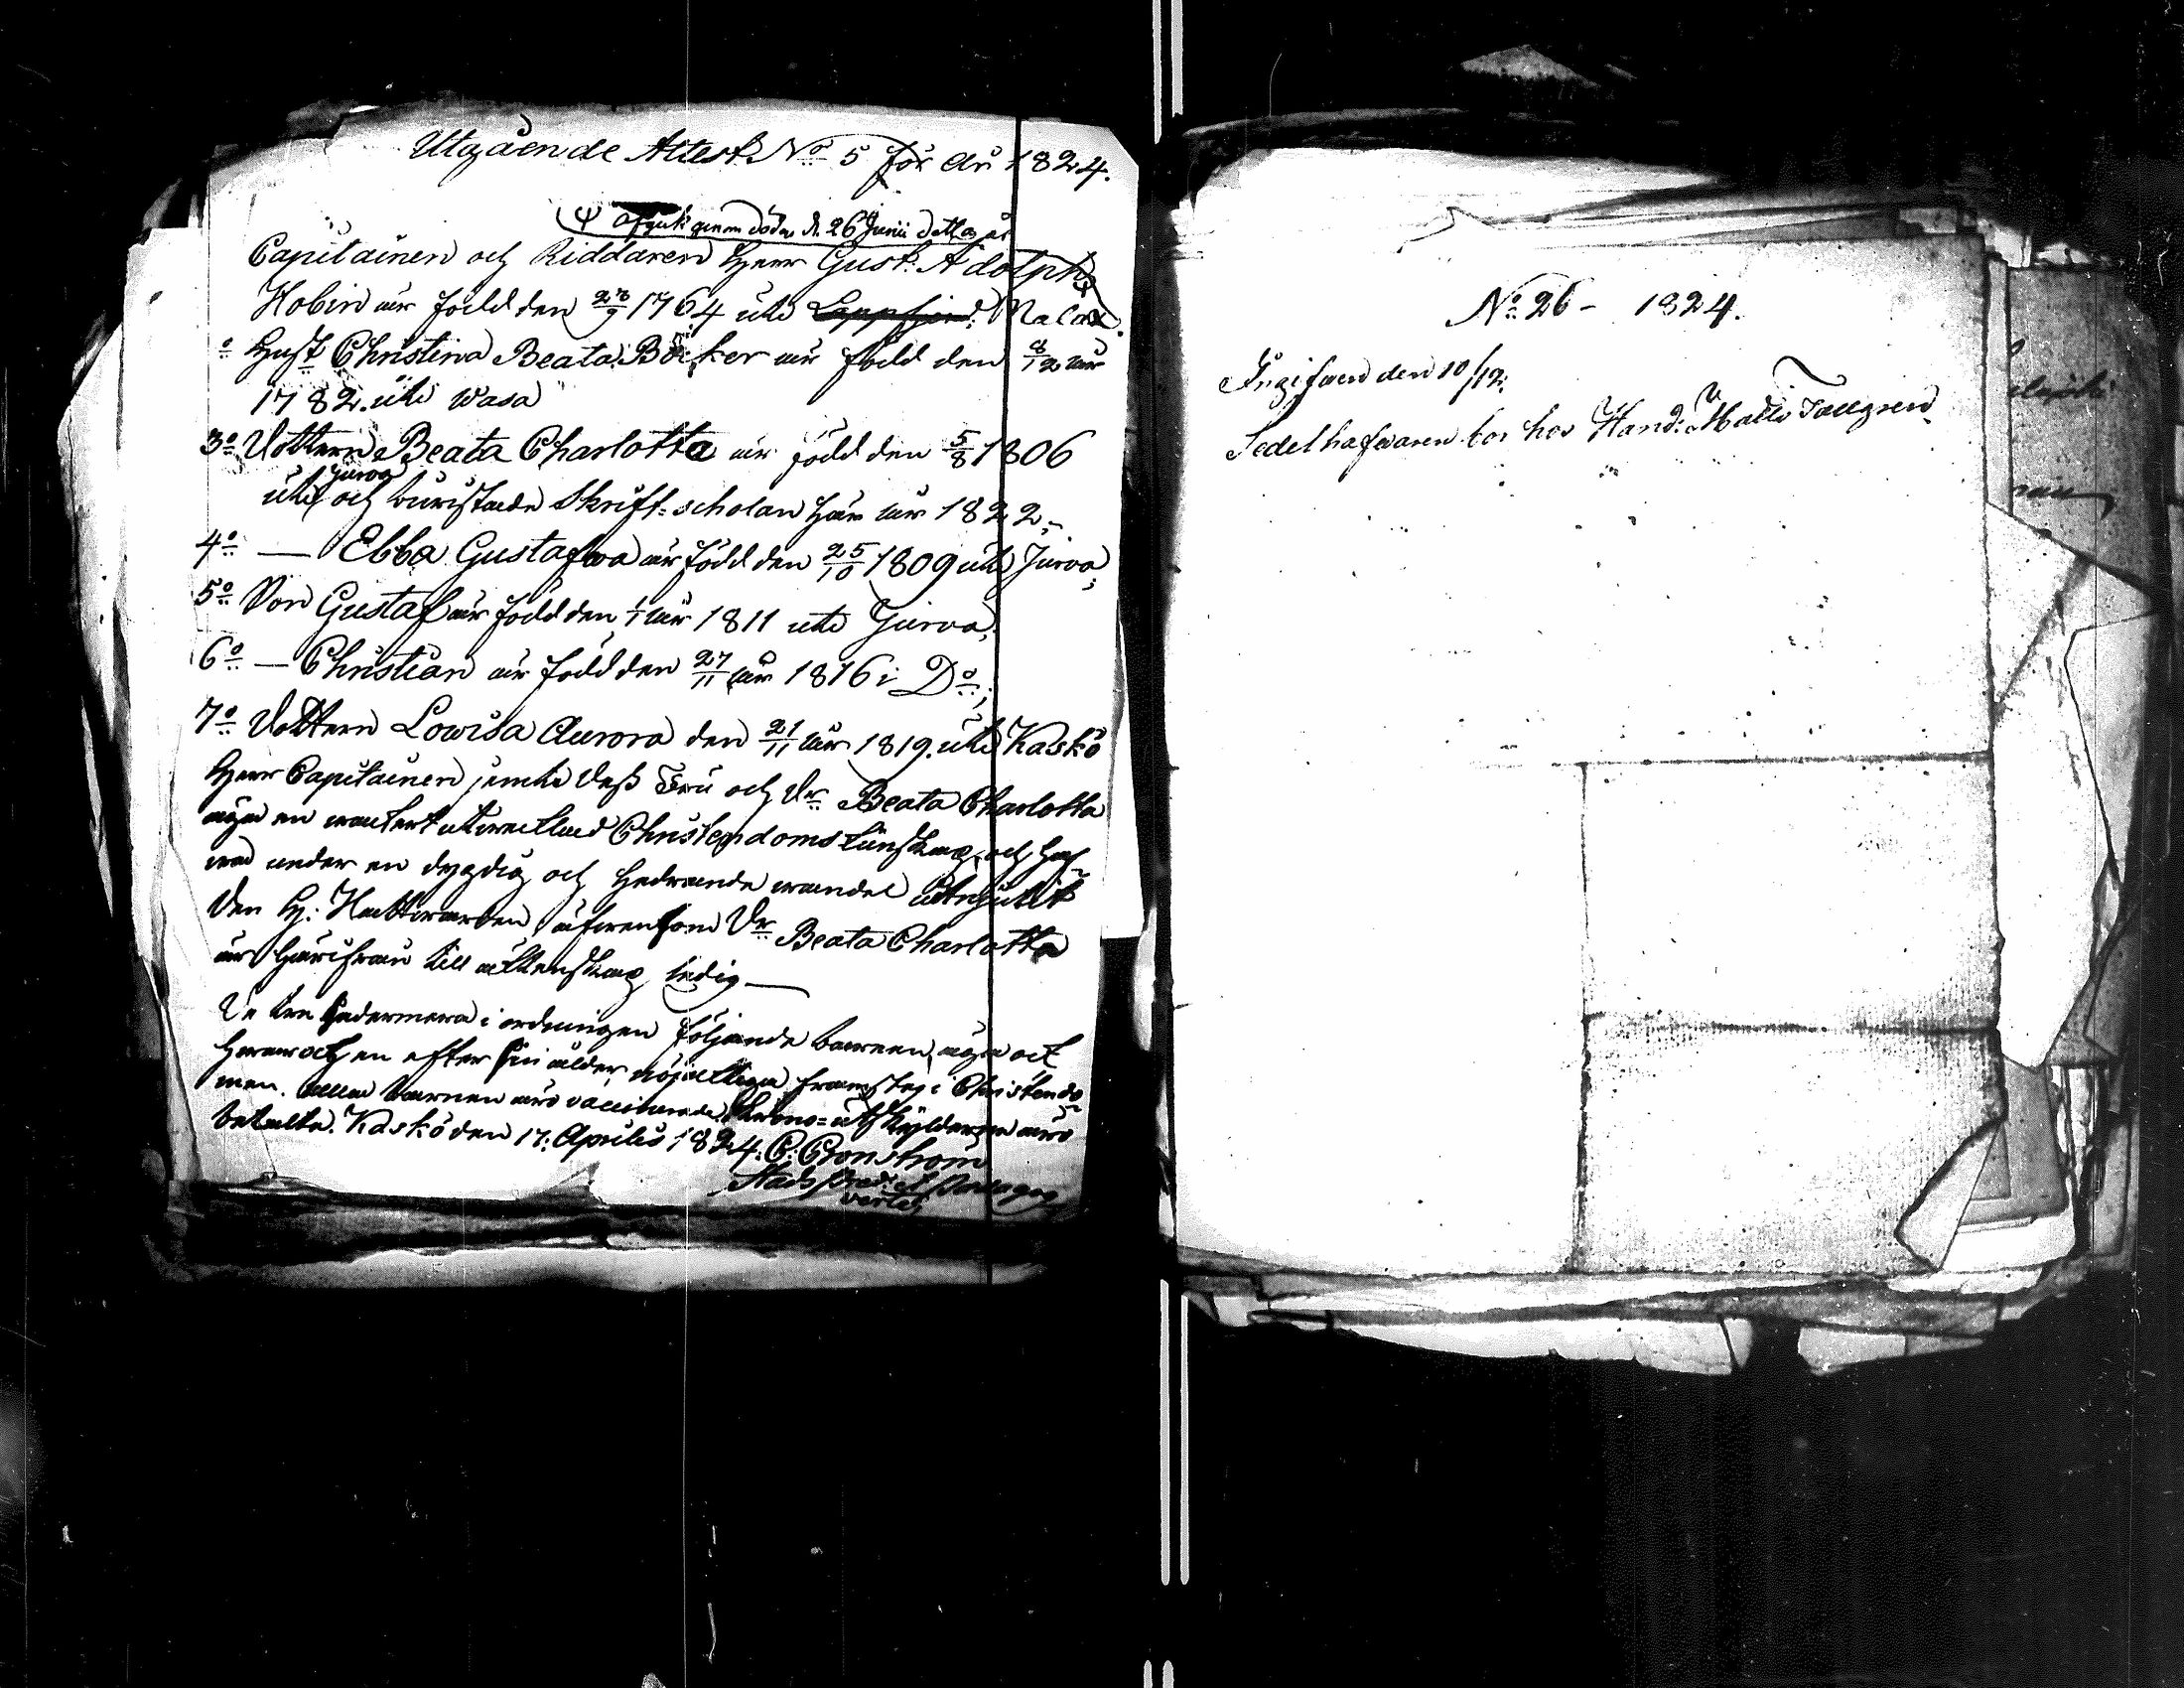 Utgående Attest No 5 för år 1824.
Ψ afgick genom döden d. 26 Junii detta år
Capitainen och Riddaren Herr Gust: Adolph
Hobin är född den 27/9 1764 uti Lappfjerd: Malax.
Hust Christina Beata Böcker är född den 8/12 år
1782. uti Wasa
3o Dottern Beata Charlotta är född den 5/8 1806
Jurva
uti och bevistade Skrift-scholan här år 1822,
4o — Ebba Gustafwa är född den 25/10 1809 uti Jurva,
5o Son Gustaf är född den 1/1 år 1811 uti Jurva,
6o — Christian är född den 27/11 år 1816 i Do,
7o Dottern Lowisa Aurora den 21/11 år 1819. uti Kaskö
Herr Capitainen jemte dess Fru och Dr Beata Charlotta
äga en wackert utwecklad Christendoms kunskap, och haf-
wa under en dygdig och hedrande wandel åtnjutit
Den H: Nattwarden, äfwensom Dr Beata Charlotta
är härifrån till äktenskap ledig —
De tre sedermera i ordningen följande barnen, äga ock
en efter sin ålder framsteg i Christendo-
men. Alla barnen äro vaccinerade, Krono-utskylderne äro
betalta. Kaskö den 17. Aprilis 1824. C: Cronström
Stads Pred: et Paedagog
vertas
No 26 - 1824.
Ingifwen den 10/12.
Sedelhafwaren bor hos Hand: Matts Tallgren